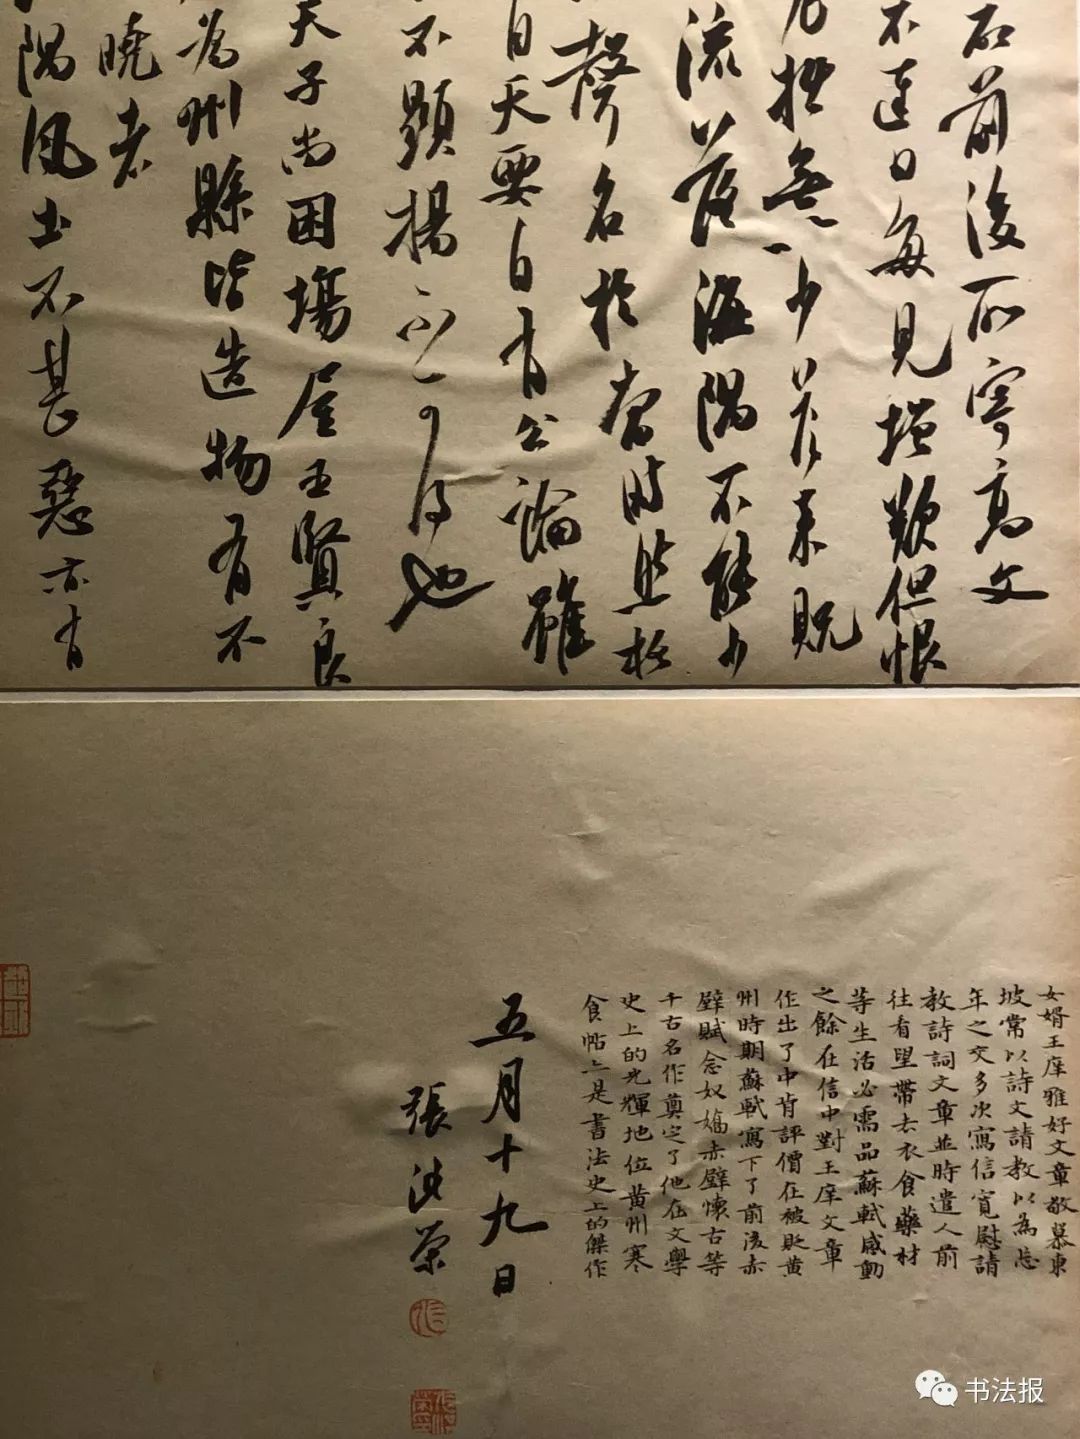 前後所寄高文
不達日每見增歎但恨
老拙無一少答來貺
流落海隅不能少
聲名於當時然格
自天要自有公論雖
不顯揚不可得也
天子尚困場屋王賢良
為州縣皆造物有不
曉者
隅風土不甚惡亦有
女婿王庠雅好文章敬慕東
坡常以詩文請教以為忘
年之交多次寫信寬慰請
教詩詞文章並時遣人前
往看望帶去衣食藥材
等生活必需品蘇軾感動
之餘在信中對王庠文章
作出了中肯評價在被貶黃
州時期蘇軾寫下了前後赤
壁賦念奴嬌赤壁懷古等
千古名作奠定了他在文學
史上的光輝地位黃州寒
食帖亦是書法史上的傑作
五月十九日
張波榮
书法报